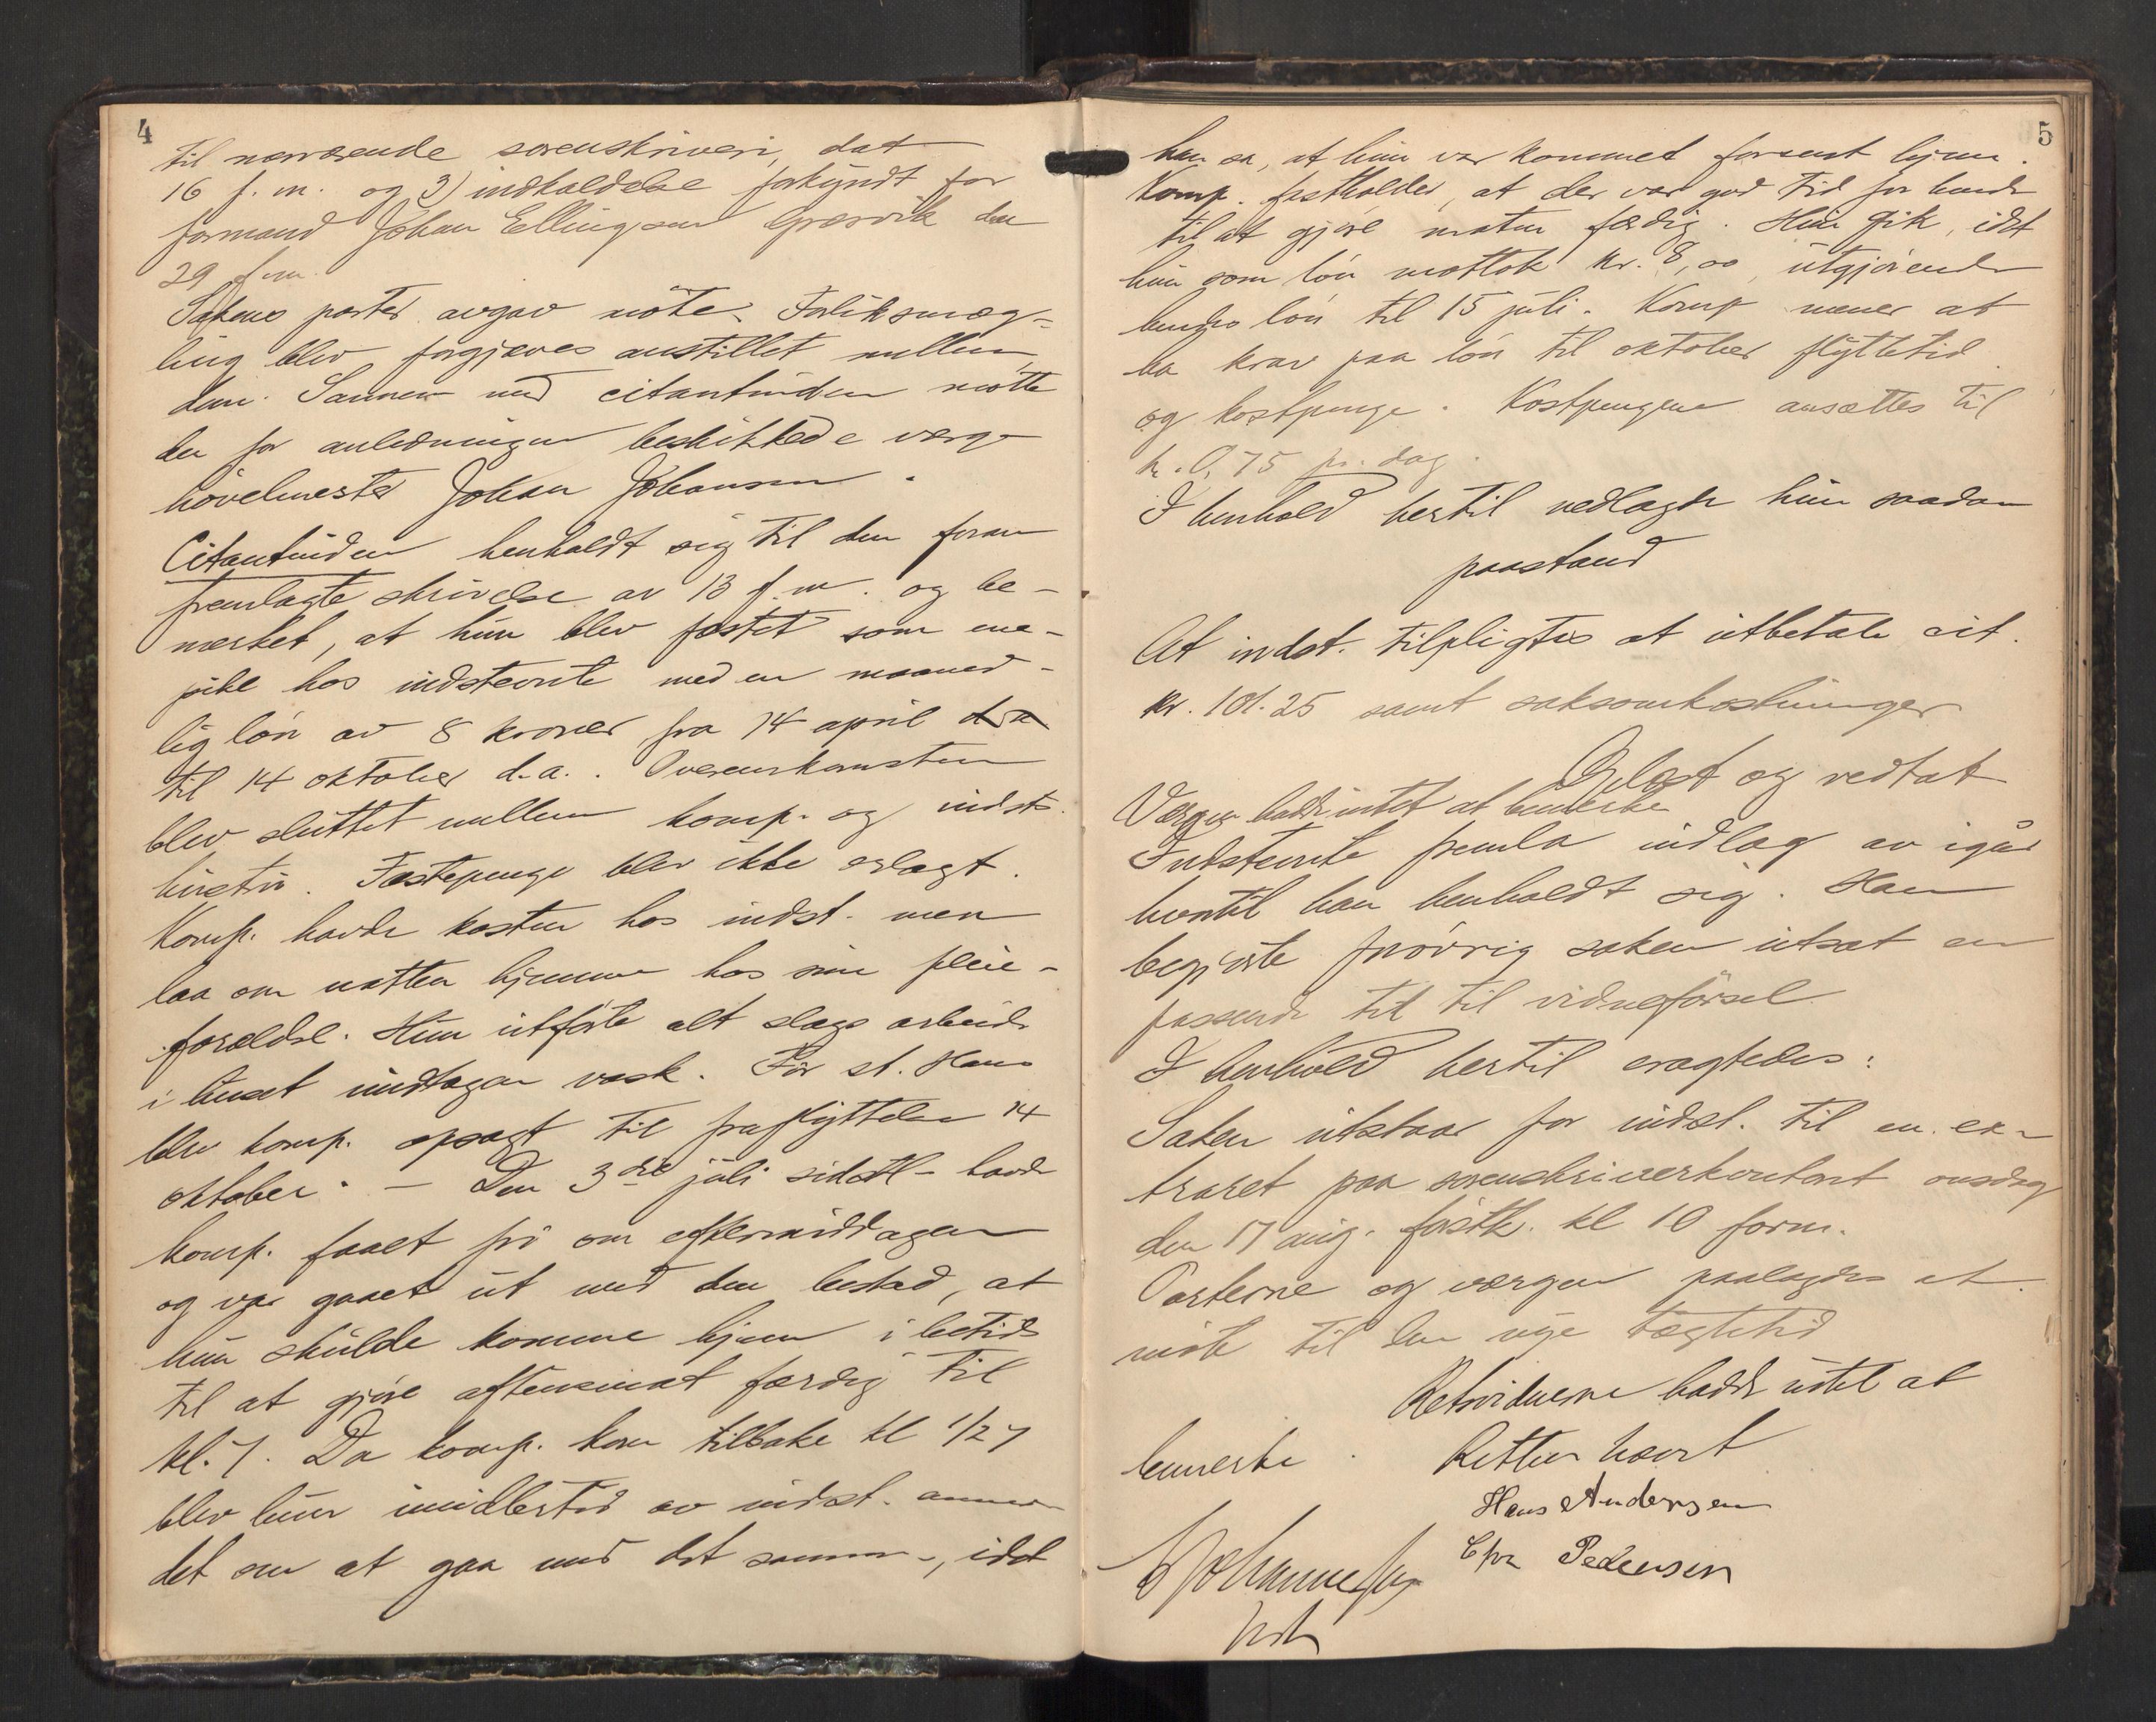 4
til nærværende sorenskriveri, dat
16 f.m. og 3) indkaldelse forkyndt for
formand Johan Ellingsen Græsvik den
29 f.m.
Sakens parter avgav møte. Forliksmæg-
ling blev forgjæves anstillet mellem
dem. Sammen med citantinden møtte
den for anledningen beskikkede verge
høvelmester Johan Johansen.
Citantinden henholdt sig til den foran
fremlagte skrivelse av 13 f.m. og be-
merket, at hun blev fæstet som ene-
pike hos indstevnte med en maaned-
lig løn av 8 kroner fra 14 april d.a
til 14 oktober d.a. Overenskomsten
blev sluttet mellem komp. og indst.
hustru. Fæstepenge blev ikke erlagt.
Komp. havde kosten hos indst. men
laa om natten hjemme hos sine pleie-
forældre. Hun utførte alt slags arbeide
i huset undtagen vask. Før st. Hans
blev komp. opsagt til fraflyttelse 14
oktober. — Den 3die juli sidstl. havde
komp. faaet fri om eftermiddagen
og var gaaet ut med den besked, at
hun skulde komme hjem i betids
til at gjøre aftensmat færdig til
kl. 7. Da komp. kom tilbake kl 1/2 7
blev hun imidlertid av indst. anmo-
det om at gaa med det samme, idet
5
han sa, at hun var kommet forsent hjem.
Komp. fastholder, at der var god tid for hende
til at gjøre maten færdig. Hun gik, idet
hun som løn mottok kr. 8,00 utgjørende
hendes løn til 15 juli. Komp mener at
ha krav paa løn til oktober flyttetid
og kostpenge. Kostpengene ansættes til
kr. 0,75 pr. dag.
I henhold hertil nedlagde hun saadan
paastand
At indst. tilpligtes at utbetale cit.
kr. 101.25 samt saksomkostninger
Oplæst og vedtat
Vergen hadde intet at bemerke
Indstevnte fremla indlæg av igår
hvortil han henholdt sig. Han
begjærte forøvrig saken utsat en
passende tid til vidneførsel.
I henhold hertil eragtedes:
Saken utstaar for indst. til en ex-
traret paa sorenskriverkontoret onsdag
den 17 aug. førstk. kl 10 form.
Parterne og vergen paalagdes at
møte til den nye tægtetid
Retsvidnerne hadde intet at
bemerke. Retten hævet
Hans Andersen
Chr Pedersen